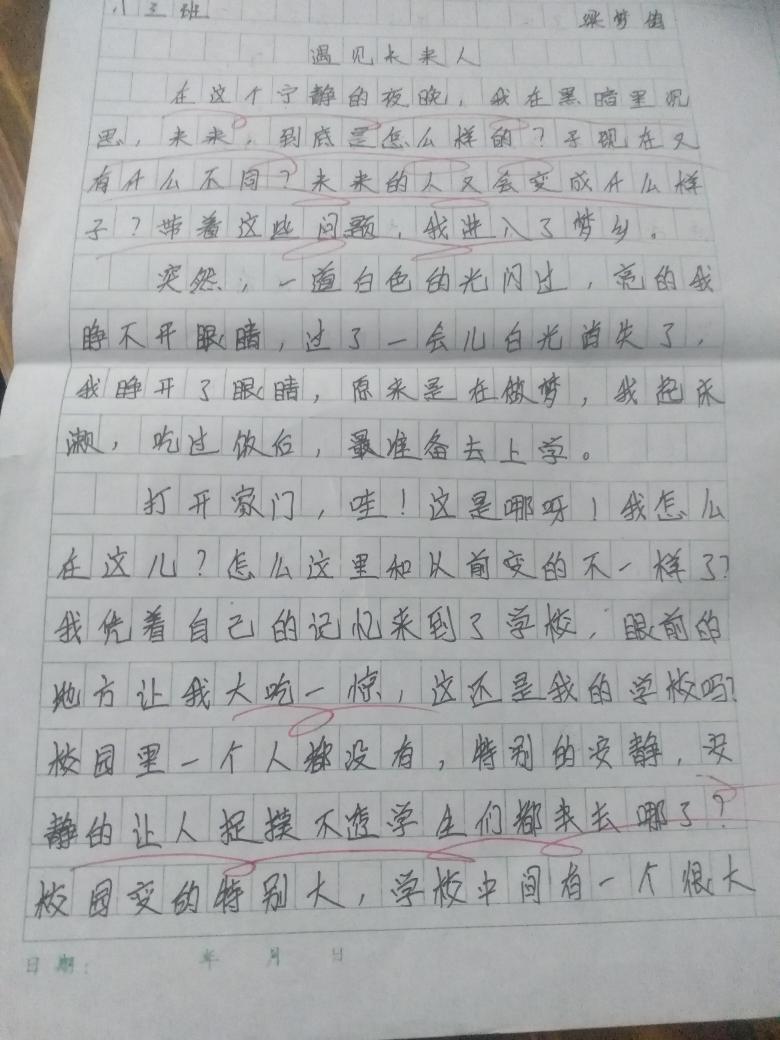 八三班 梁梦
遇见未来人
在这个宁静的夜晚，我在黑暗里沉
思，未来，到底是怎么样的？子现在又
有什么不同？未来的人又会变成什么样
子？带着这些问题，我进入了梦乡。
突然，一道白色的光闪过，亮的我
睁不开眼睛，过了一会儿白光消失了，
我睁开了眼睛，原来是在做梦，我起床
漱，吃过饭后，最准备去上学。
打开家门，哇！这是哪呀！我怎么
在这儿？怎么这里和以前变的不一样了？
我凭着自己的记忆来到了学校，眼前的
地方让我大吃一惊，这还是我的学校吗？
校园里一个人都没有，特别的安静，安
静的让人捉摸不透学生们都来去哪了？
校园变的特别大，学校中间有一个很大
日期： 年 月 日